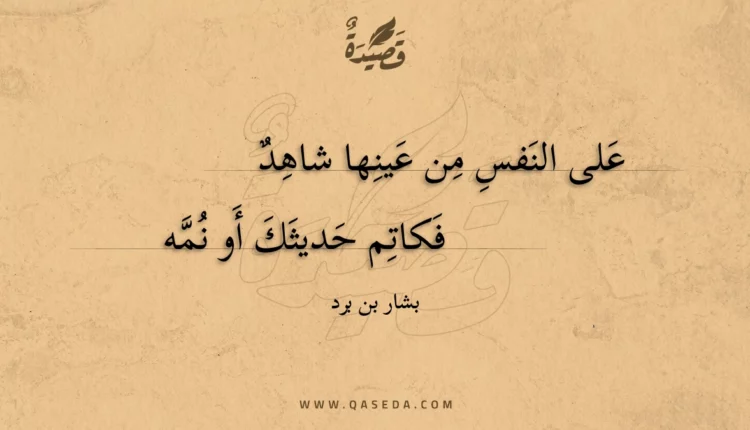 قَصِيدَةٌ
عَلى النَفسِ مِن عَينِها شاهِدٌ
فَكاتِم حَديثَكَ أَو نُمَّه
بشار بن برد
WWW.QASEDA.COM